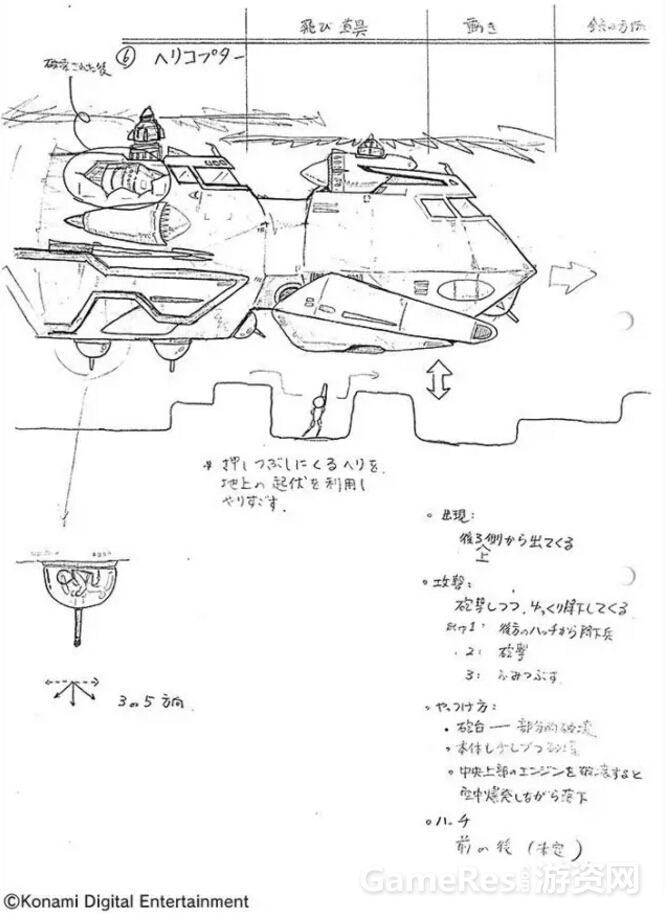 飛び道具 動き
⑥ ヘリコプター
破壊された後
※ 押しつぶしにくるヘリを
地上の起伏を利用し
やりすごす。
3 or 5 方向
○ 出現:
後ろ側から出てくる
上
○ 攻撃:
砲撃しつつ、ゆっくり降下してくる
後方のハッチから降下兵
2: 砲撃
3: ふみつぶす
○ やっつけ方:
・砲台 ー 部分的破壊
・本体も少しづつ破壊
・中央上部のエンジンを破壊すると
空中爆発しながら落下
○ ハッチ
前 or 後 (未定)
GameRes游资网
©Konami Digital Entertainment